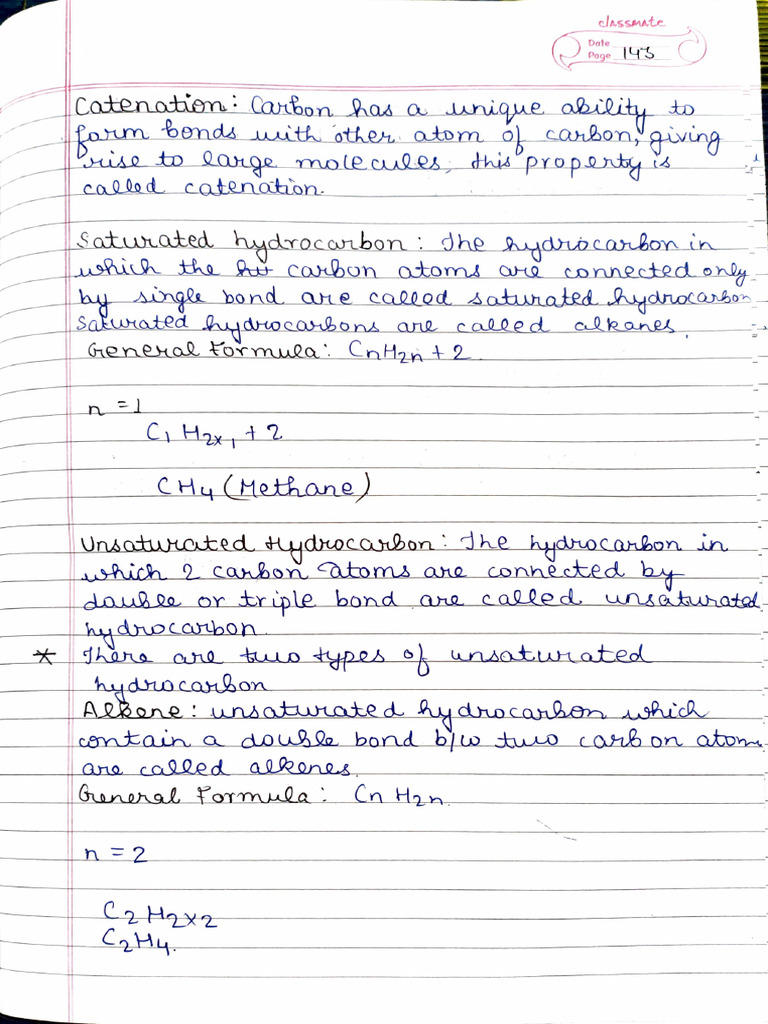 classmate
Date
Page 143
Catenation: Carbon has a unique ability to
form bonds with other atom of carbon, giving
rise to large molecules, this property is
called catenation.
Saturated hydrocarbon: The hydrocarbon in
which the carbon atoms are connected only
by single bond are called saturated hydrocarbon
saturated hydrocarbons are called alkanes.
General Formula: CnH2n + 2
n = 1
C1 H2x1 + 2
CH4 (Methane)
Unsaturated Hydrocarbon: The hydrocarbon in
which 2 carbon atoms are connected by
double or triple bond are called unsaturated
hydrocarbon.
* There are two types of unsaturated
hydrocarbon
Alkene: unsaturated hydrocarbon which
contain a double bond b/w two carbon atom
are called alkenes.
General Formula: CnH2n.
n = 2
C2H2x2
C2H4.